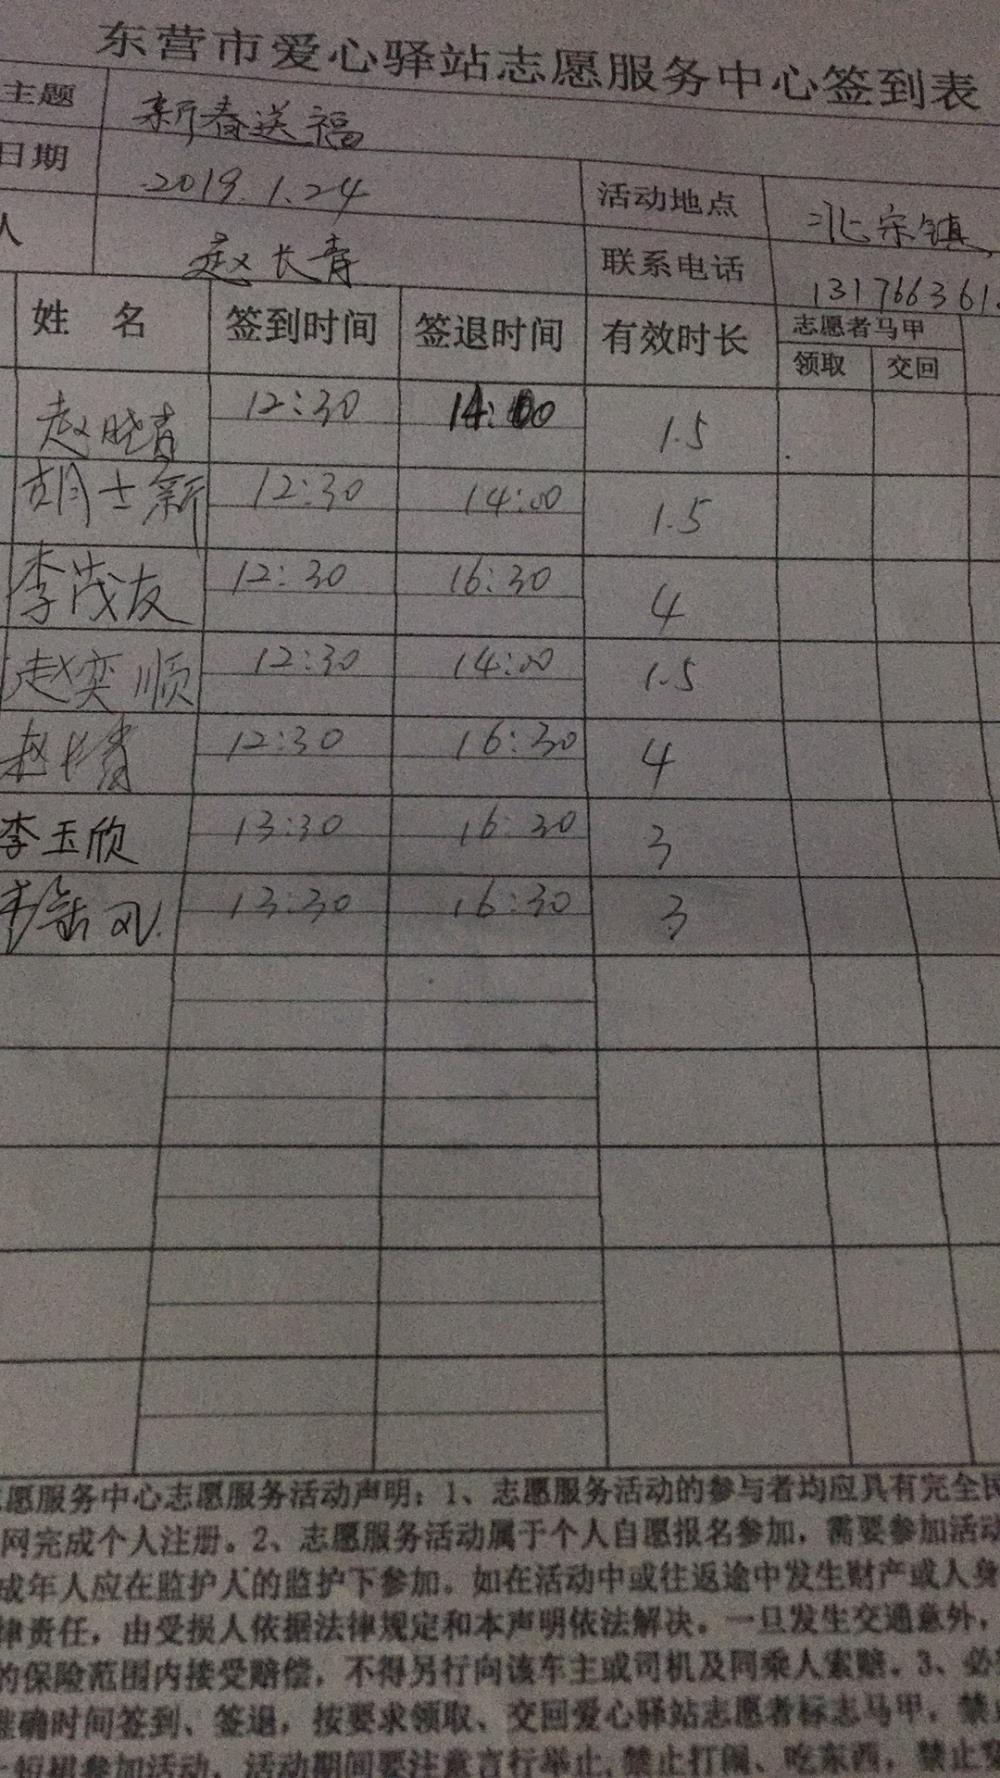 东营市爱心驿站志愿服务中心签到表
主题 新春送福
日期 2019.1.24 活动地点 北宋镇
人 赵长青 联系电话 131766361
姓 名 签到时间 签退时间 有效时长 志愿者马甲
领取 交回
赵晓青 12:30 14:00 1.5
胡士新 12:30 14:00 1.5
李茂友 12:30 16:30 4
赵奕顺 12:30 14:00 1.5
赵长青 12:30 16:30 4
李玉欣 13:30 16:30 3
13:30 16:30 3
愿服务中心志愿服务活动声明：1、志愿服务活动的参与者均应具有完全民
网完成个人注册。2、志愿服务活动属于个人自愿报名参加，需要参加活动
成年人应在监护人的监护下参加。如在活动中或往返途中发生财产或人身
律责任，由受损人依据法律规定和本声明依法解决。一旦发生交通意外，
的保险范围内接受赔偿，不得另行向该车主或司机及同乘人索赔。3、必
准确时间签到、签退，按要求领取、交回爱心驿站志愿者标志马甲，禁
短裙参加活动，活动期间要注意言行举止，禁止打闹、吃东西，禁止